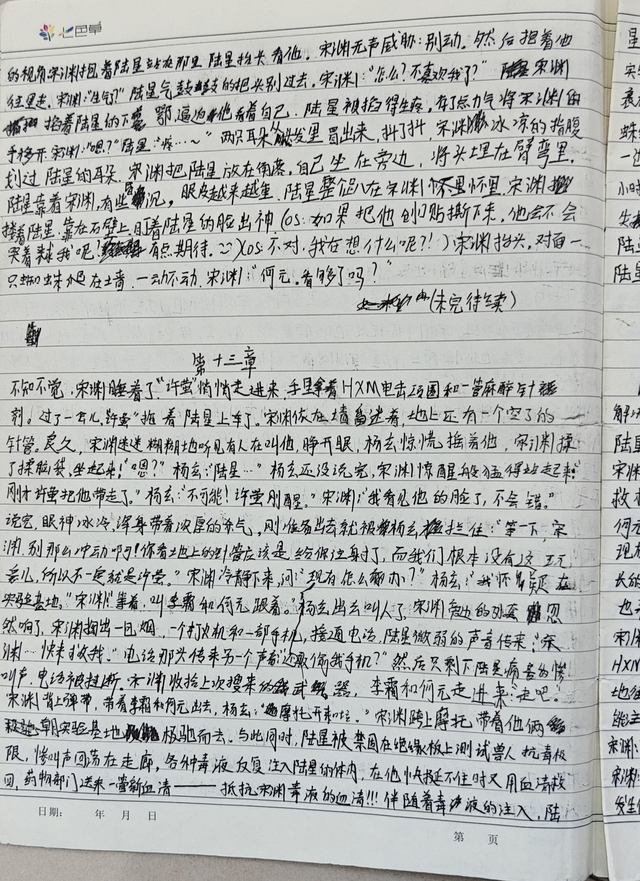 七色草
的视频宋渊抱着陆星站在那里 陆星抬头看他。宋渊无声威胁:别动。然后抱着他
往里走。宋渊:"生气了?"陆星气鼓鼓的把头别过去。宋渊:"怎么?不喜欢我了?" 宋渊
掐着陆星的下鄂 逼迫他看着自己。陆星被掐得生疼,有了点力气将宋渊的
手移开。宋渊:"嗯?"陆星:"疼…~"两只耳朵从发里冒出来,抖了抖,宋渊冰凉的指腹
划过陆星的耳朵。宋渊把陆星放在角落,自己坐在旁边,将头埋在臂弯里。
陆星靠着宋渊,有些沉,眼皮越来越重。陆星整个人在宋渊怀里,宋渊
搂着陆星,靠在石壁上,盯着陆星的脸出神(os:如果把他创口贴撕下来,他会不会
哭着求我呢?有点期待。)(os:不对,我在想什么呢?!)宋渊抬头,对面一
只蜘蛛趴在墙,一动不动。宋渊:"何元,看够了吗?"
(未完待续)
第十三章
不知不觉,宋渊睡着了。"许萤"悄悄走进来,手里拿着HXM电击项圈和一管麻醉针
剂。过了一会儿,许萤"抱着陆星上车了。宋渊依在墙边,地上还有一个空了的
针管。良久,宋渊迷迷糊糊地听见有人在叫他,睁开眼,杨玄惊慌摇着他,宋渊揉
了揉脑袋,坐起来:"嗯?"杨玄:"陆星…"杨玄还没说完,宋渊惊醒般猛得站起来:"
刚才许萤把他带走了。"杨玄:"不可能!许萤刚醒。"宋渊:"我看见他的脸了,不会错。"
说完,眼神冰冷,浑身带着浓厚的杀气,刚准备出去就被杨玄拦住:"等一下,宋
渊,别那么冲动啊!你看地上的针管应该是给你注射了,而我们根本没有这玩
意儿,所以不一定就是许萤。"宋渊冷静下来,问:"现在怎么办?"杨玄:"我怀疑在
实验基地。"宋渊:"等着,叫李霜和何元跟着。"杨玄出去叫人了,宋渊旁边的忽
然响了,宋渊掏出一包烟,一个打火机和一部手机,接通电话,陆星微弱的声音传来:"宋
渊…快来救我。"电话那头传来另一个声音:"还敢偷我手机?"然后只剩下陆星痛苦的惨
叫声,电话被挂断。宋渊收拾上次搜来的武器,李霜和何元走进来:"走吧。"
宋渊背上弹带,带着李霜和何元出去,杨玄:"摩托开来啦。"宋渊跨上摩托,带着他俩
朝实验基地极驰而去。与此同时,陆星被禁固在绝缘板上测试兽人抗毒极
限,惨叫声回荡在走廊,各种毒液反复注入陆星的体内,在他快撑不住时又用血清救
回,药物部门送来一管新血清——抵抗宋渊毒液的血清!!!伴随着毒液的注入,陆
日期: 年 月 日
第 页